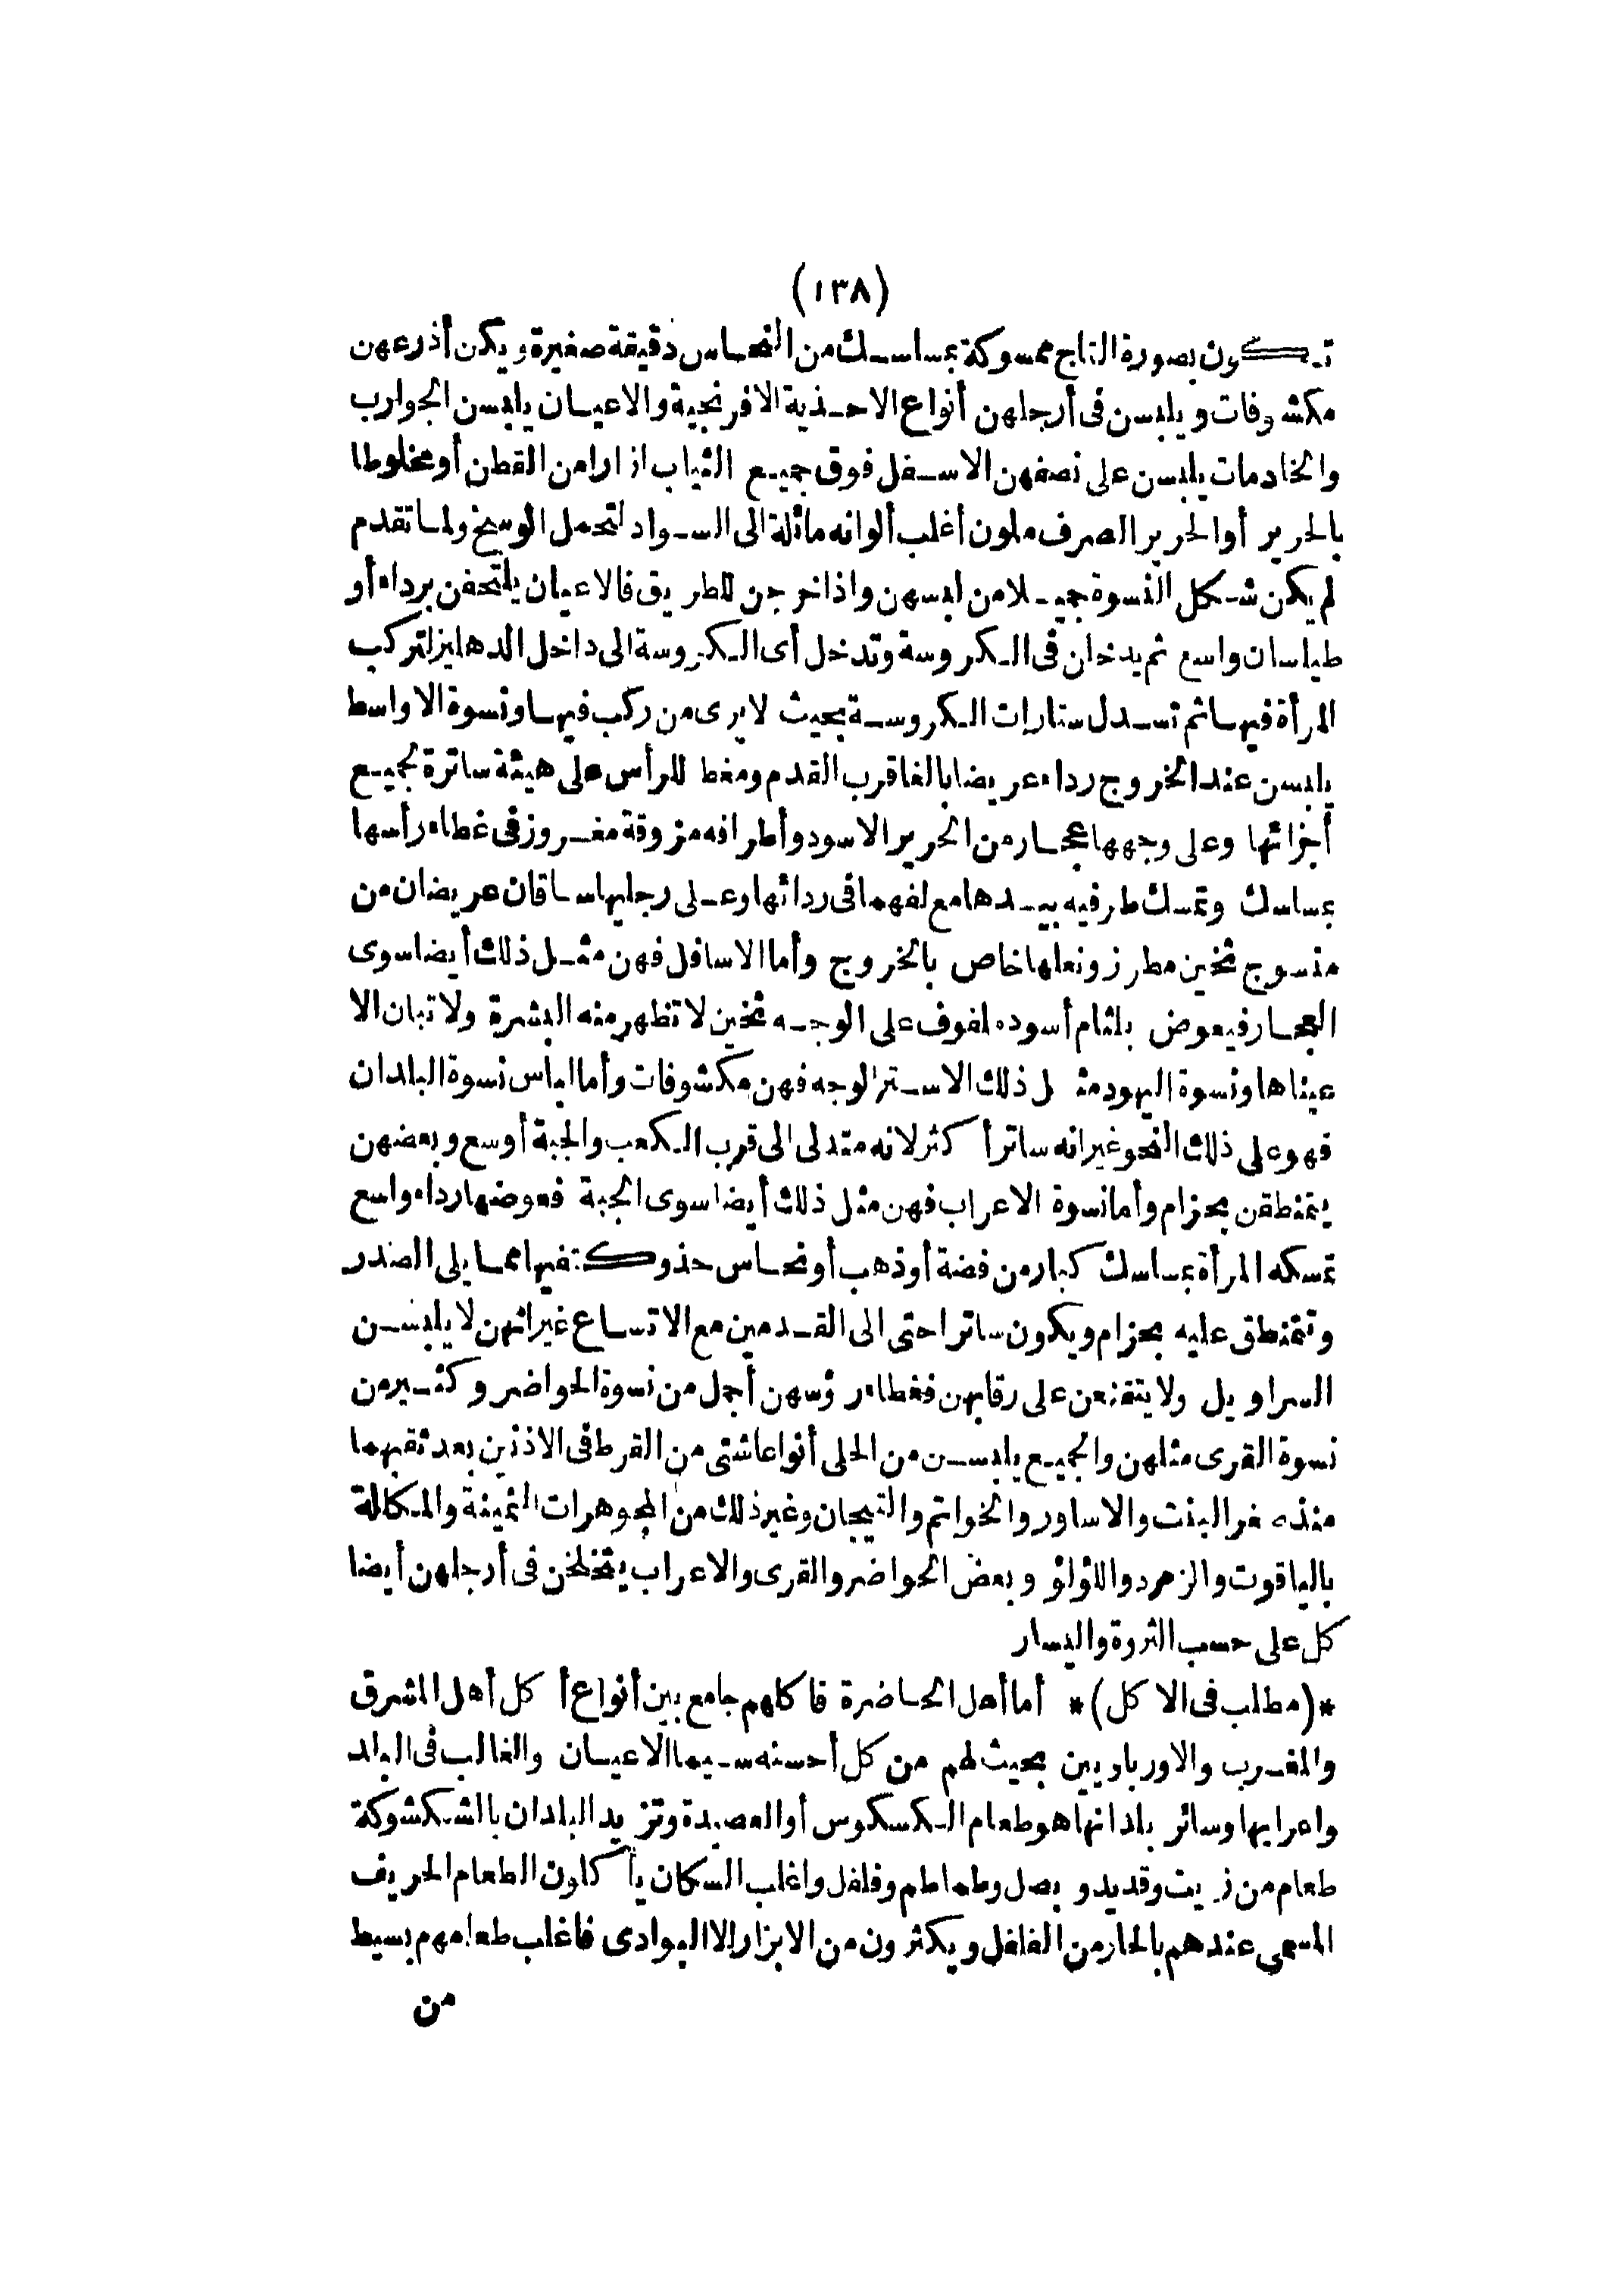 (١٣٨)
تكون بصورة التاج ممسوكة بمساسك من النحاس دقيقة صغيرة ويكن أذرعهن
مكشوفات ويلبسن فى أرجلهن أنواع الاحذية الافرنجية والاعيان يلبسن الجوارب
والخادمات يلبسن على نصفهن الاسفل فوق جميع الثياب ازارا من القطن أو مخلوطا
بالحرير أو الحرير الصرف ملون أغلب ألوانه مائلة الى السواد لتحمل الوسخ ولما تقدم
لم يكن شكل النسوة جميلا من لبسهن واذا خرجن للطريق فالاعيان يلتحفن برداء أو
طيلسان واسع ثم يدخلن فى الكروسة وتدخل أى الكروسة الى داخل الدهليز لتركب
المرأة فيها ثم تسدل ستارات الكروسة بحيث لا يرى من ركب فيها ونسوة الاواسط
يلبسن عند الخروج رداء عريضا بالغا قرب القدم ومغط للرأس على هيئة ساترة لجميع
أجزائها وعلى وجهها عجار من الحرير الاسود وأطرافه مزوقة مغروز فى غطاء رأسها
بمساسك وتمسك طرفيه بيدها مع لفهما فى ردائها وعلى رجليها ساقان عريضان من
منسوج ثخين مطرز ونعلها خاص بالخروج وأما الاسافل فهن مثل ذلك أيضا سوى
العجار فيعوض بلثام أسود ملفوف على الوجه ثخين لا تظهر منه البشرة ولا تبان الا
عيناها ونسوة اليهود مثل ذلك الا ستر الوجه فهن مكشوفات وأما لباس نسوة البلدان
فهو على ذلك النحو غير انه ساتر أكثر لانه متدلى الى قرب الكعب والجبة أوسع وبعضهن
يتمنطقن بحزام وأما نسوة الاعراب فهن مثل ذلك أيضا سوى الجبة فعوضها رداء واسع
تمسكه المرأة بمساسك كبار من فضة أو ذهب أو نحاس حذو كتفيها مما يلى الصدر
وتتمنطق عليه بحزام ويكون ساترا حتى الى القدمين مع الاتساع غير انهن لا يلبسن
السراويل ولا يتقنعن على رقابهن فغطاء رؤسهن أجمل من نسوة الحواضر وكثير من
نسوة القرى مثلهن والجميع يلبسن من الحلى أنواعا شتى من القرط فى الاذنين بعد ثقبهما
منذ صغر البنت والاساور والخواتم والتيجان وغير ذلك من المجوهرات الثمينة والمكللة
بالياقوت والزمرد واللؤلؤ وبعض الحواضر والقرى والاعراب يتخلخلن فى أرجلهن أيضا
كل على حسب الثروة واليسار
*(مطلب فى الاكل)* أما أهل الحاضرة فاكلهم جامع بين أنواع أكل أهل المشرق
والمغرب والاورباويين بحيث لهم من كل أحسنه سيما الاعيان والغالب فى البلد
واعرابها وسائر بلدانها هو طعام الكسكوس أو العصيدة وتزيد البلدان بالشكشوكة
طعام من زيت وقديد وبصل وطماطم وفلفل واغلب السكان يأكلون الطعام الحريف
المسمى عندهم بالحار من الفلفل ويكثرون من الابزار الا البوادى فاغلب طعامهم بسيط
من